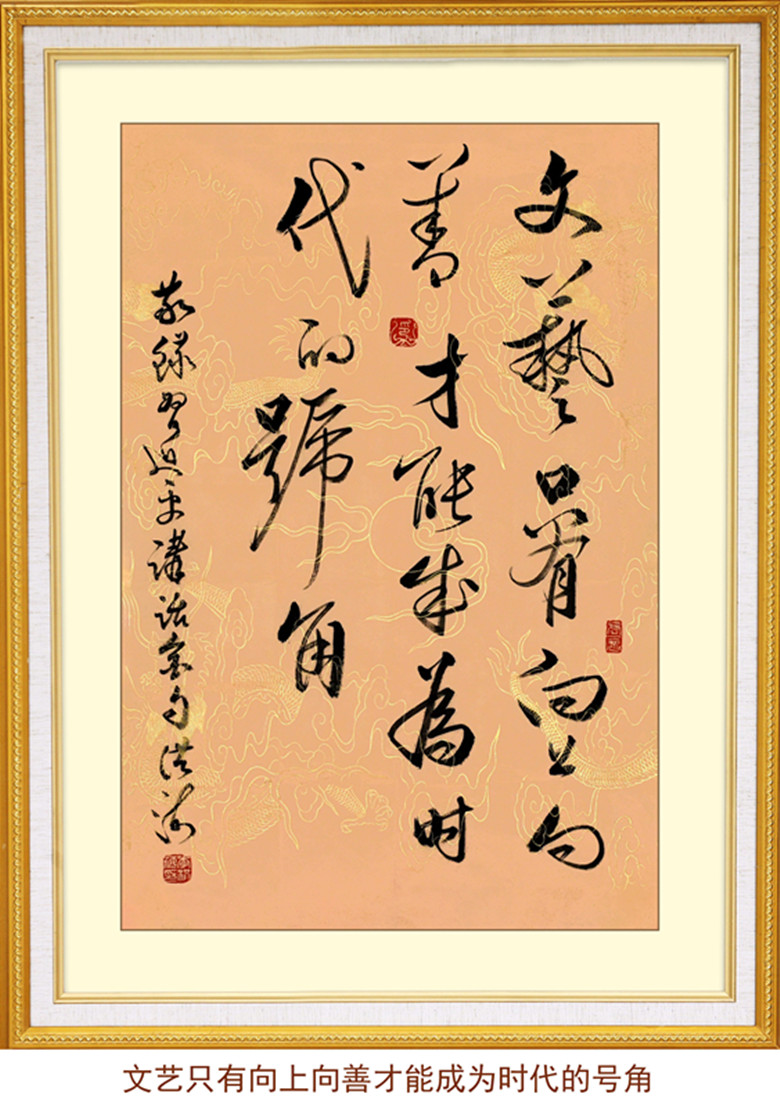 文藝只有向上向
善才能成為时
代的號角
敬録習近平講話金句洪
文艺只有向上向善才能成为时代的号角